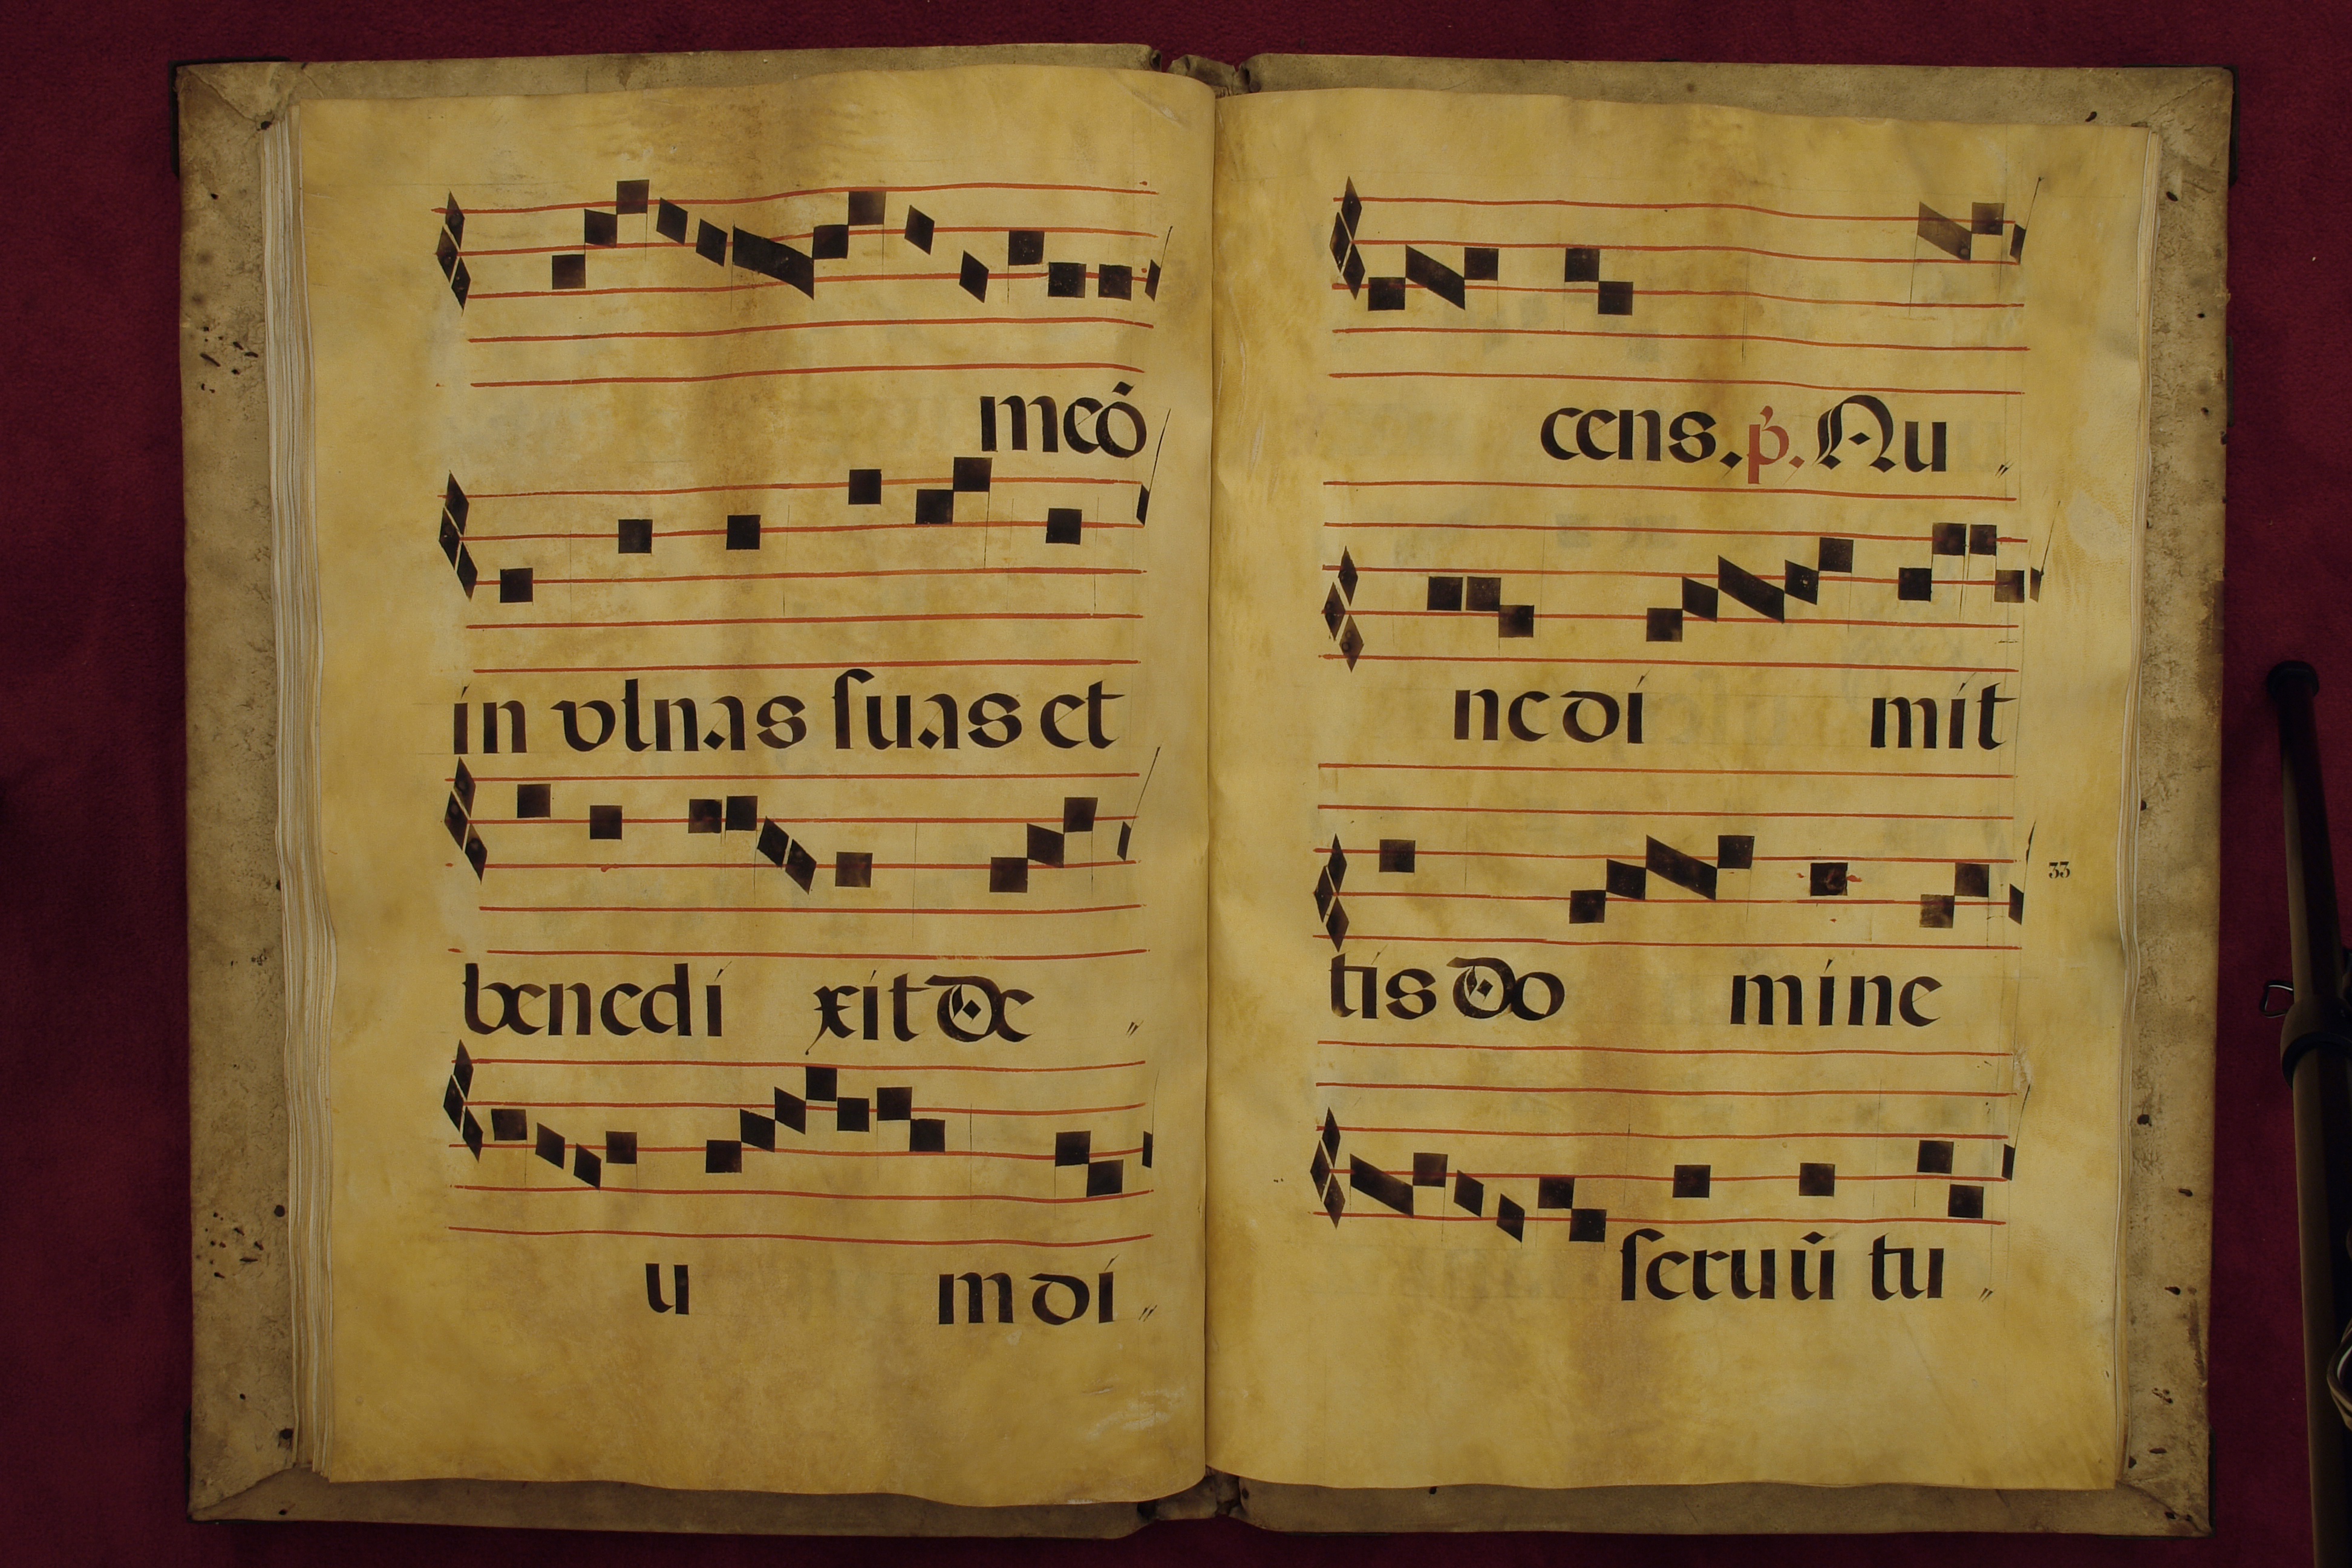 meó
in vlnas suas et
benedi xit de
u m di
cens. p. Nu
nc di mit
tis do mine
33
seruū tu